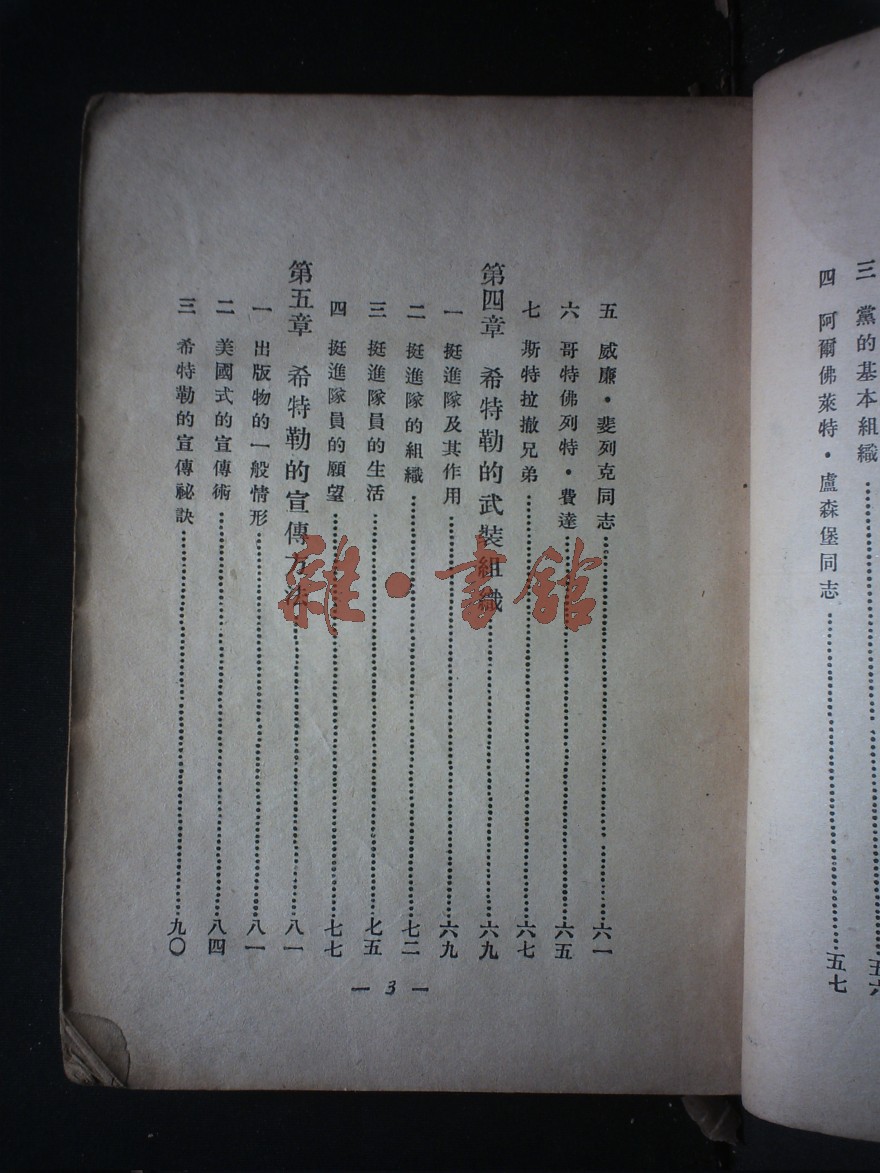 三 黨的基本組織……五六
四 阿爾佛萊特・盧森堡同志……五七
五 威廉・裴列克同志……六一
六 哥特佛列特・費達……六五
七 斯特拉撤兄弟……六七
第四章 希特勒的武裝組織……六九
一 挺進隊及其作用……六九
二 挺進隊的組織……七二
三 挺進隊員的生活……七五
四 挺進隊員的願望……七七
第五章 希特勒的宣傳方法……八一
一 出版物的一般情形……八一
二 美國式的宣傳術……八四
三 希特勒的宣傳祕訣……九〇
— 3 —
雜・書館